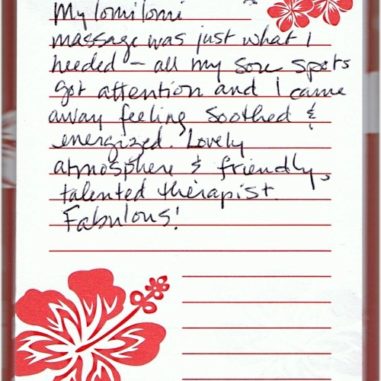 My lomilomi
massage was just what I
needed - all my sore spots
got attention and I came
away feeling soothed &
energized. Lovely
atmosphere & friendly,
talented therapist.
Fabulous!